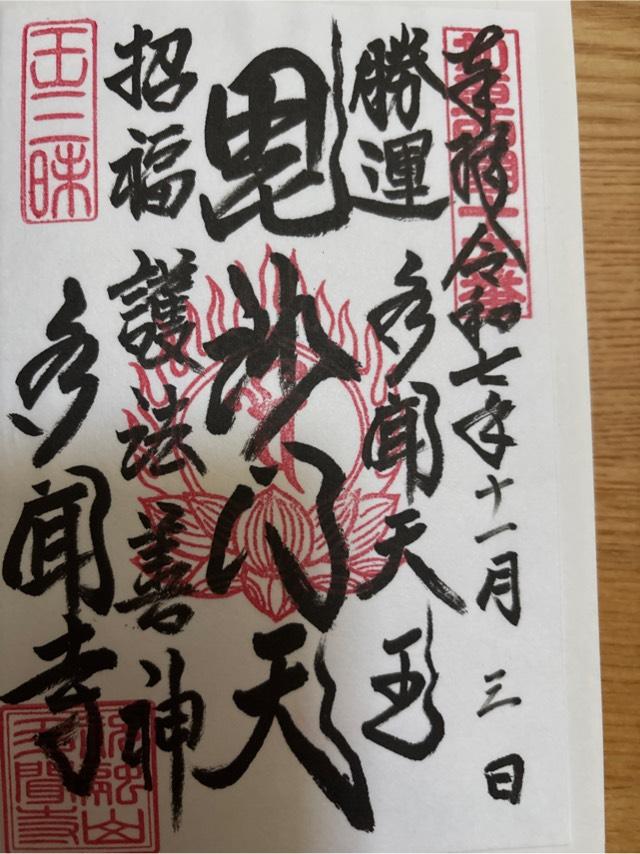 奉拝 令和七年十一月三日
勝運 多聞天王
毘沙門天
招福 護法善神
多聞寺
五三昧